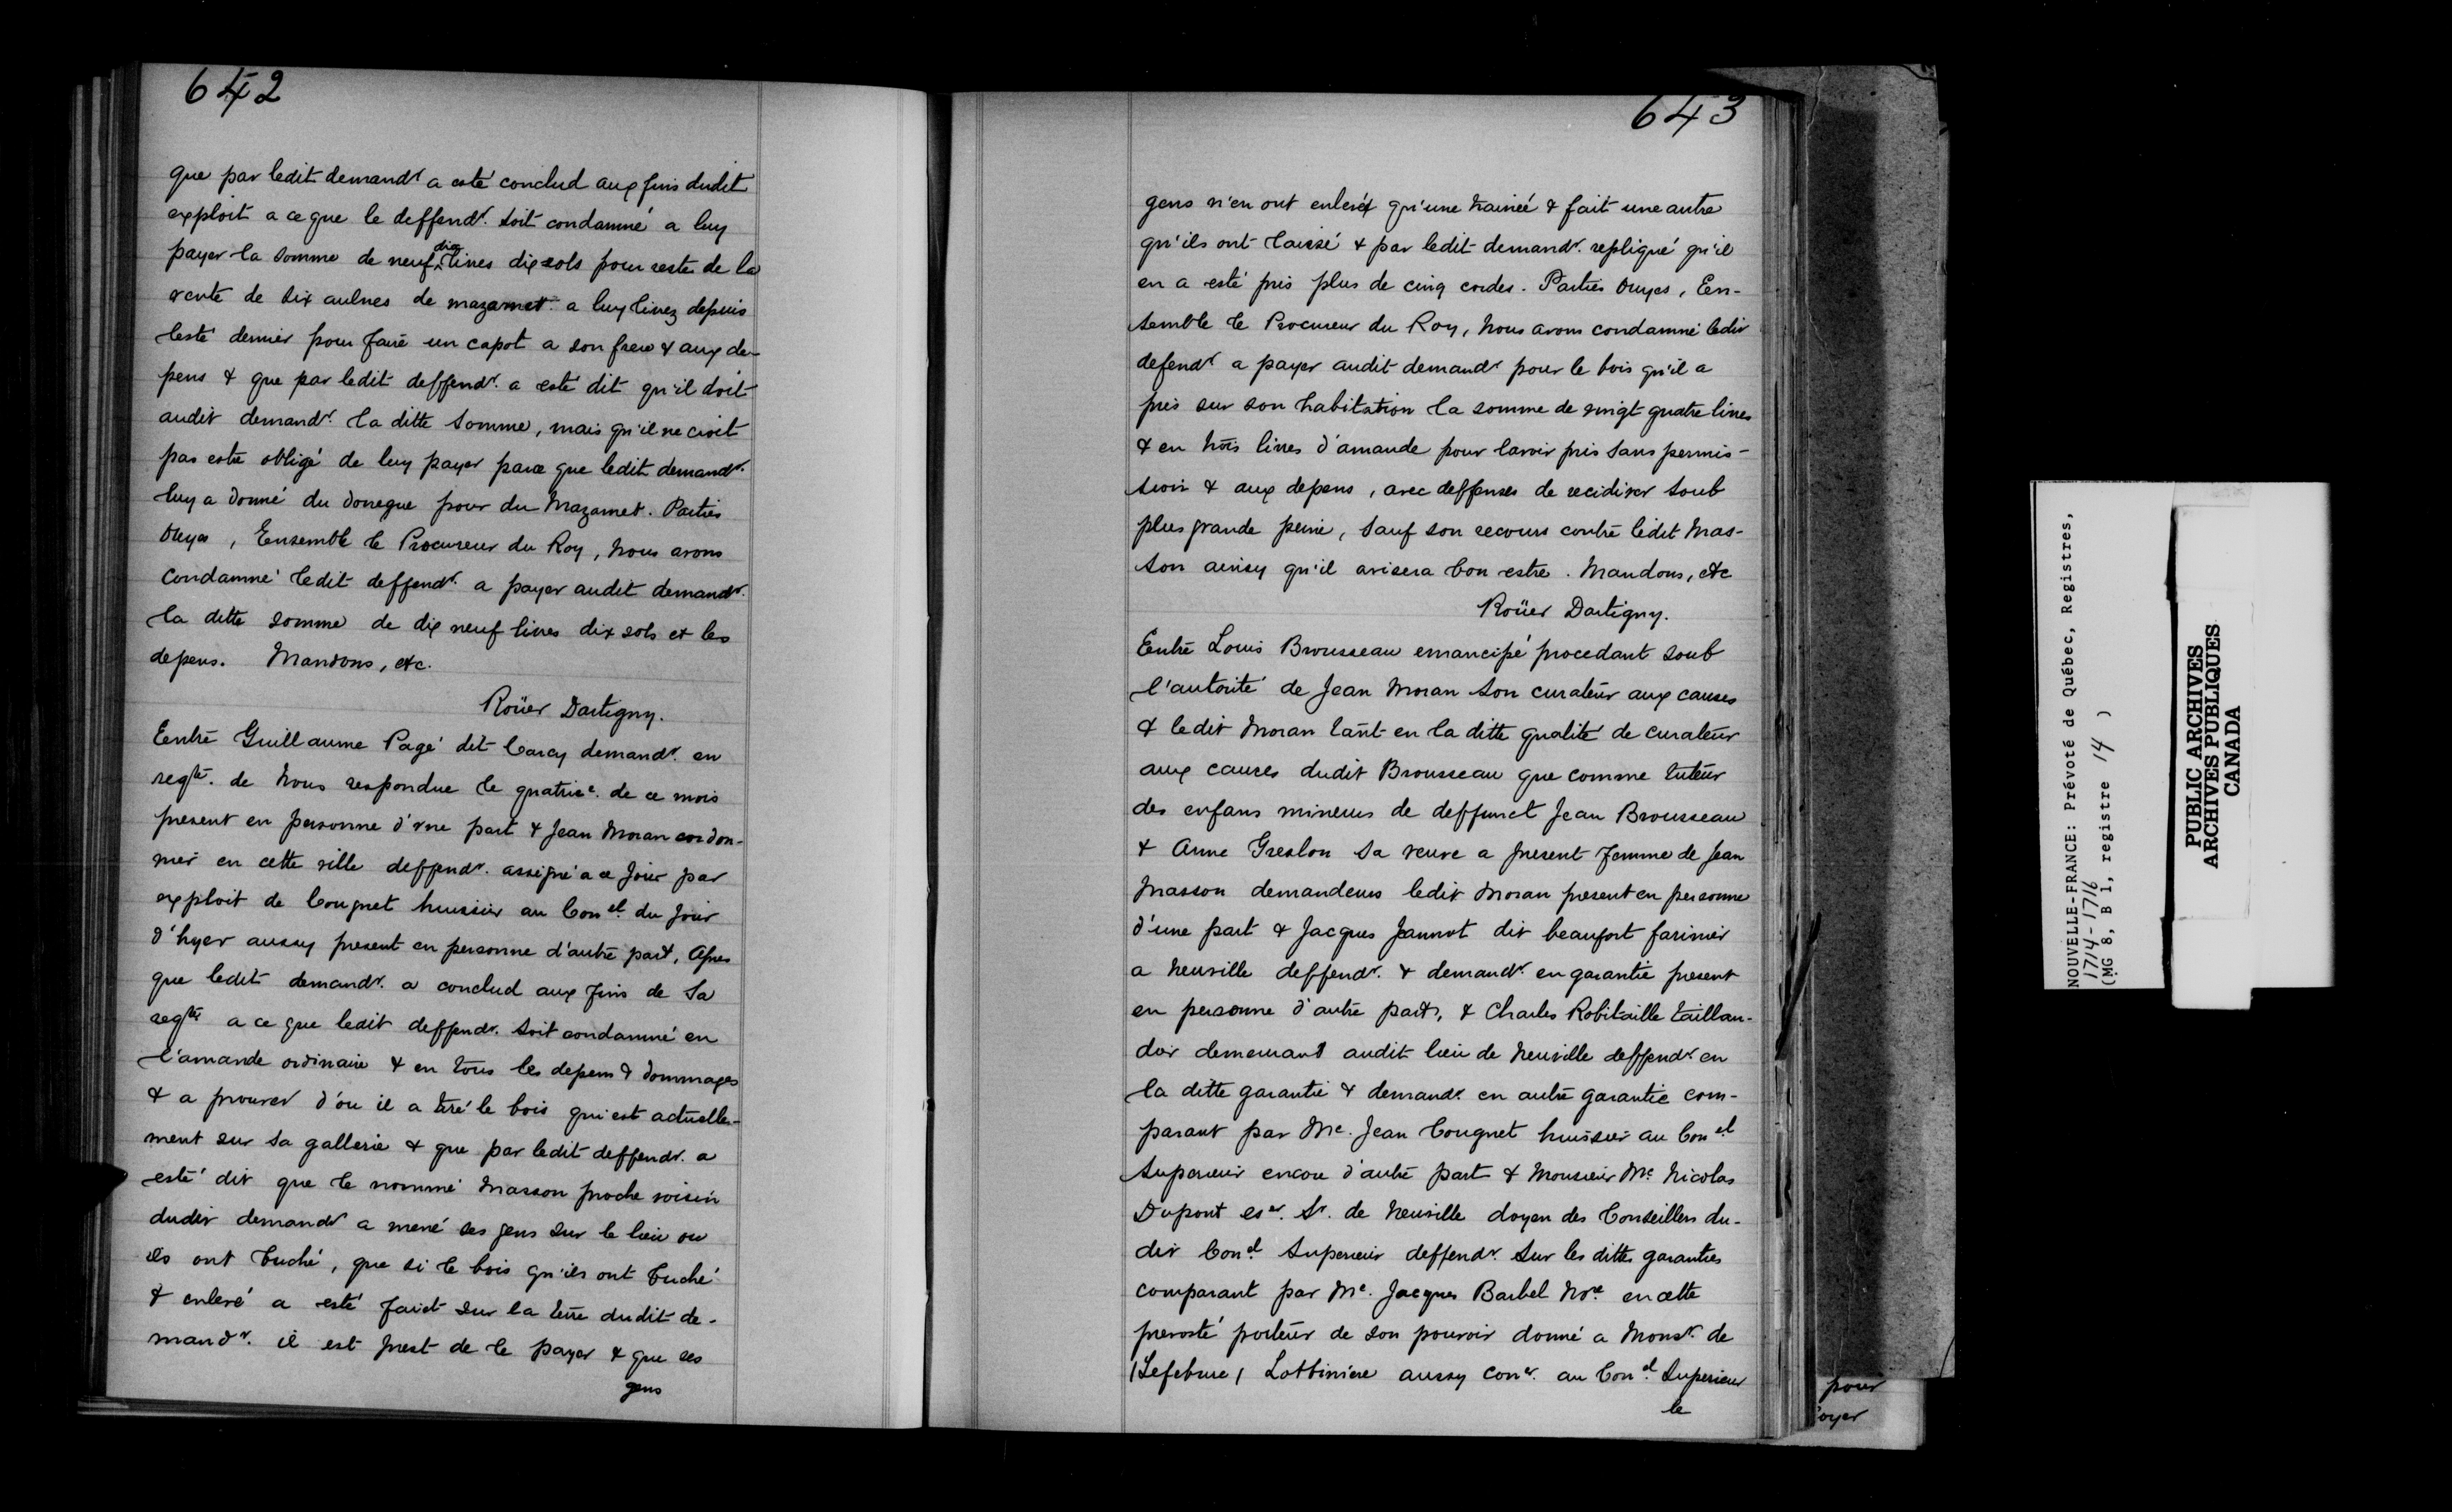 642
que par ledit demandr a esté conclud aux fins dudit
exploit a ce que le deffendr. soit condamné a luy
payer la somme de neuf dix livres dix sols pour reste de la
vente de six aulnes de mazamet a luy livrez depuis
lesté dernier pour faire un capot a son frere & aux de-
pens & que par ledit deffendr. a esté dit qu'il doit
audit demandr. la ditte somme, mais qu'il ne croit
pas estre obligé de luy payer parce que ledit demandr.
luy a donné du donegue pour du Mazamet. Parties
Ouyes, Ensemble le Procureur du Roy, Nous avons
condamné ledit deffendr. a payer audit demandr.
la ditte somme de dix neuf livres dix sols et les
depens. Mandons, etc.
Roüer Dartigny.
Entre Guillaume Pagé dit Carcy demandr. en
reqte. de Nous respondue le quatrie. de ce mois
present en personne d'vne part & Jean Moran cordon-
nier en cette ville deffendr. assigné a ce jour par
exploit de Congnet huissier au Conel. du jour
d'hyer aussy present en personne d'autre part, Apres
que ledit demandr. a conclud aux fins de Sa
reqte a ce que ledit deffendr. soit condamné en
l'amande ordinaire & en tous les depens & dommages
& a prouver d'ou il a tiré le bois qui est actuelle-
ment sur sa gallerie & que par ledit deffendr. a
esté dit que le nommé Masson proche voisin
dudit demandr a mené ses gens sur le lieu ou
ils ont buché, que si le bois qu'ils ont buché
& enlevé a esté faict sur la terre dudit de-
mandr. il est prest de le payer & que ses
gens
643
gens n'en ont enlevé qu'une trainée & fait une autre
qu'ils ont laissé & par ledit demandr. repliqué qu'il
en a esté pris plus de cinq cordes. Parties Ouyes, En-
semble le Procureur du Roy, Nous avons condamné ledit
defendr a payer audit demandr pour le bois qu'il a
pris sur son habitation la somme de vingt quatre livres
& en trois livres d'amande pour lavoir pris sans permis-
sion & aux depens, avec deffenses de recidiver soub
plus grande peine, sauf son recours contre ledit Mas-
son ainsy qu'il avisera bon estre. Mandons, etc
Roüer Dartigny.
Entre Louis Brousseau emancipé procedant soub
l'autorité de Jean Moran son curateur aux causes
& ledit Moran tant en la ditte qualité de curateur
aux causes dudit Brousseau que comme tuteur
des enfans mineurs de deffunct Jean Brousseau
& Anne Greslon sa veuve a present femme de Jean
Masson demandeurs ledit Moran present en personne
d'une part & Jacques Jeannot dit beaufort farinier
a Neuville deffendr. & demandr. en garantie present
en personne d'autre part, & Charles Robitaille taillan-
dier demeurant audit lieu de Neuville deffendr. en
la ditte garantie & demandr. en autre garantie com-
parant par Me. Jean Congnet huissier au Conel
Superieur encore d'autre part & Monsieur Me. Nicolas
Dupont eser. Sr. de Neuville doyen des Conseillers du-
dit Conel Superieur deffendr. sur les dittes garanties
comparant par Me. Jacques Barbel Nre en cette
prevosté porteur de son pouvoir donné a Monsr. de
(Lefebure) Lotbiniere aussy coner. au Conel. Superieur
le
pour
oyer
NOUVELLE-FRANCE: Prévoté de Québec, Registres,
1714-1716
(MG 8, B 1, registre 14 )
PUBLIC ARCHIVES
ARCHIVES PUBLIQUES
CANADA